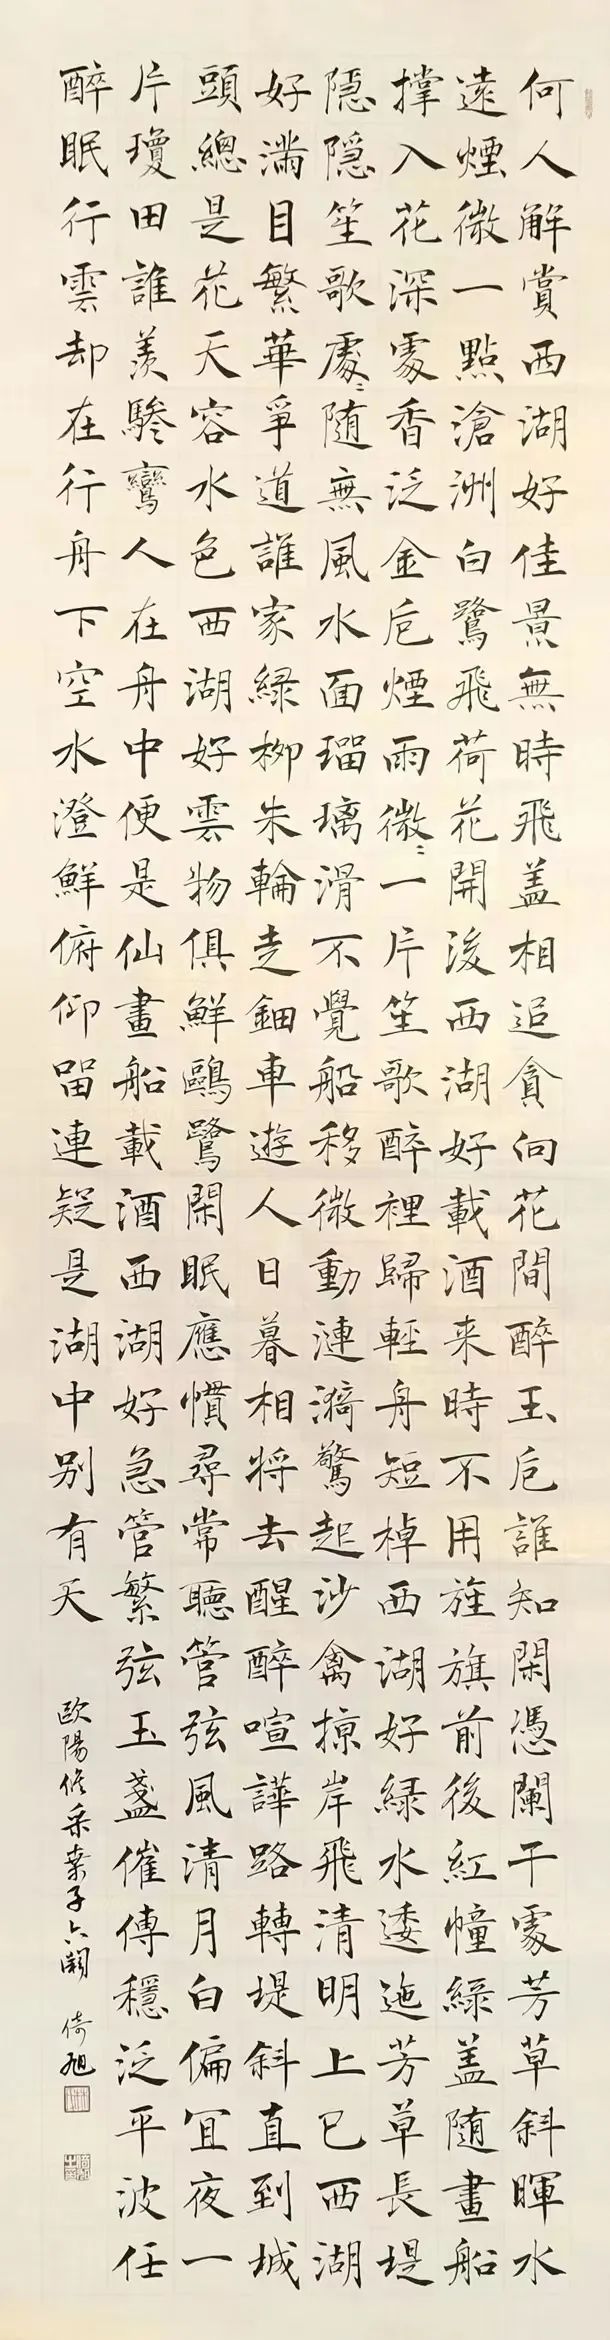 何人解賞西湖好佳景無時飛盖相追貪向花間醉玉卮誰知閑憑闌干處芳草斜暉水
遠煙微一點滄洲白鷺飛荷花開後西湖好載酒来時不用旌旗前後紅幢綠盖随畫船
撑入花深處香泛金卮煙雨微〻一片笙歌醉裡歸輕舟短棹西湖好綠水逶迤芳草長堤
隱隱笙歌處〻随無風水面瑠璃滑不覺船移微動漣漪驚起沙禽掠岸飛清明上巳西湖
好滿目繁華爭道誰家綠柳朱輪走鈿車遊人日暮相將去醒醉喧譁路轉堤斜直到城
頭總是花天容水色西湖好雲物俱鮮鷗鷺閑眠應慣尋常聽管弦風清月白偏宜夜一
片瓊田誰羨驂鸞人在舟中便是仙畫船載酒西湖好急管繁弦玉盞催傳穩泛平波任
醉眠行雲却在行舟下空水澄鮮俯仰留連疑是湖中別有天
歐陽修采桑子六闋 倚旭